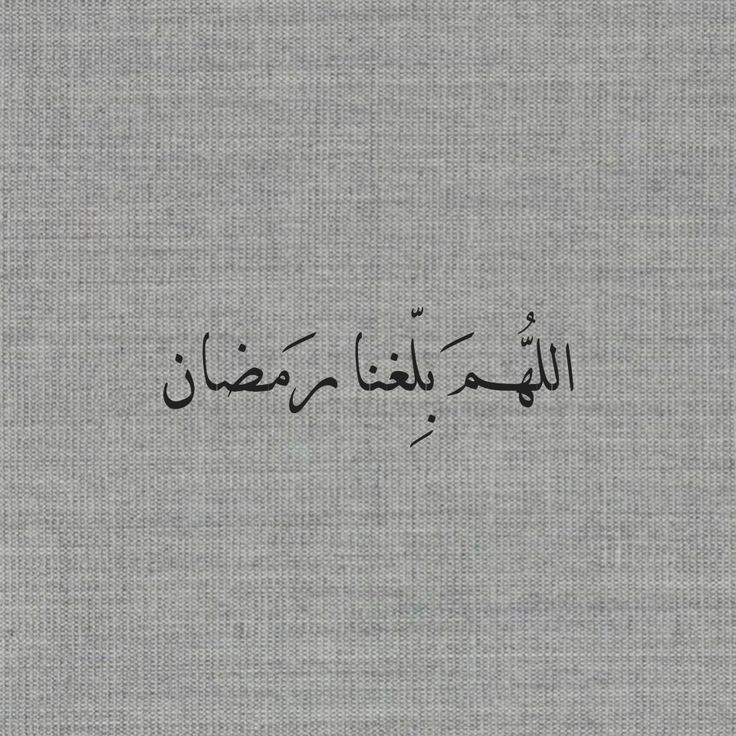 اللهُّمَ بَلِّغنا رمَضان